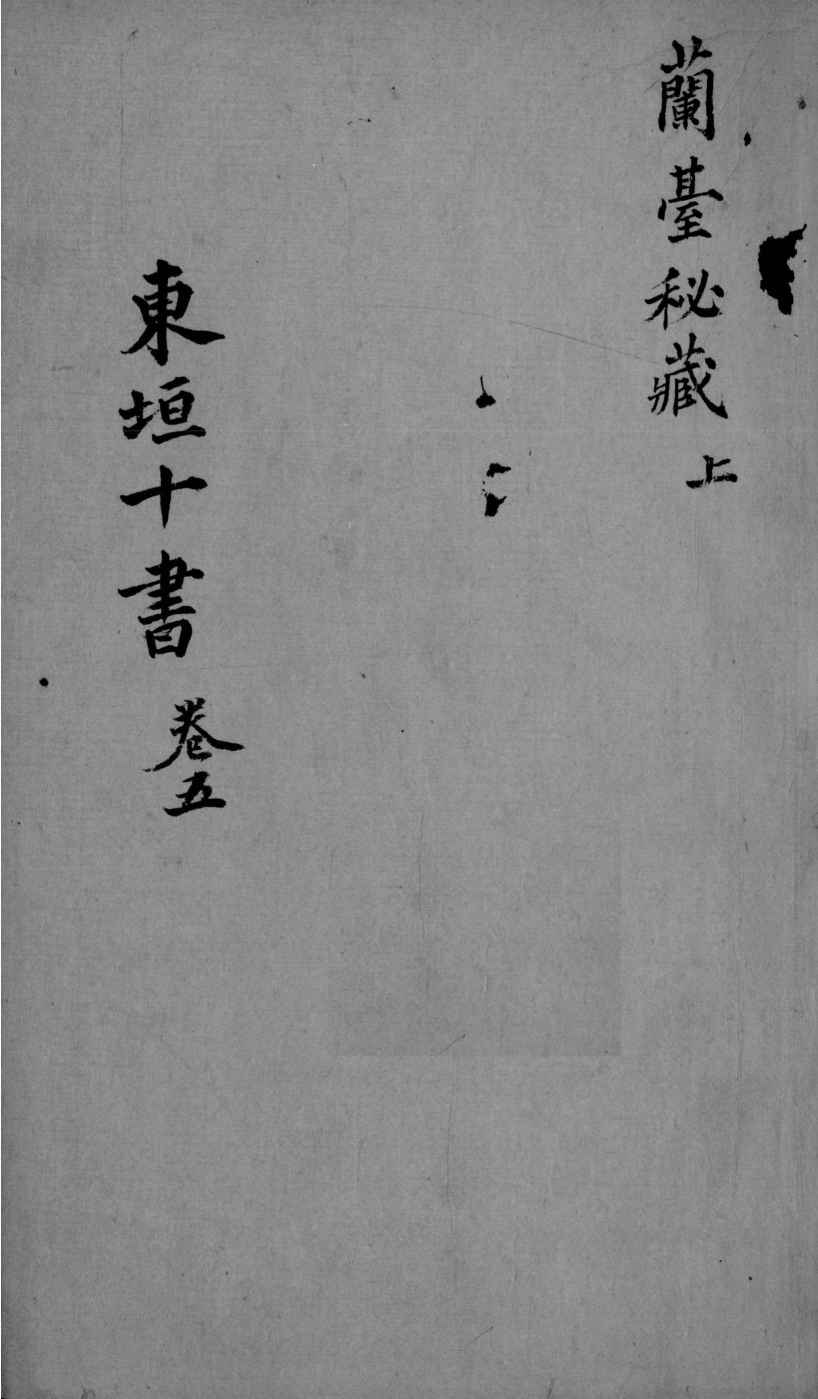 蘭臺秘藏 上
東垣十書 卷五